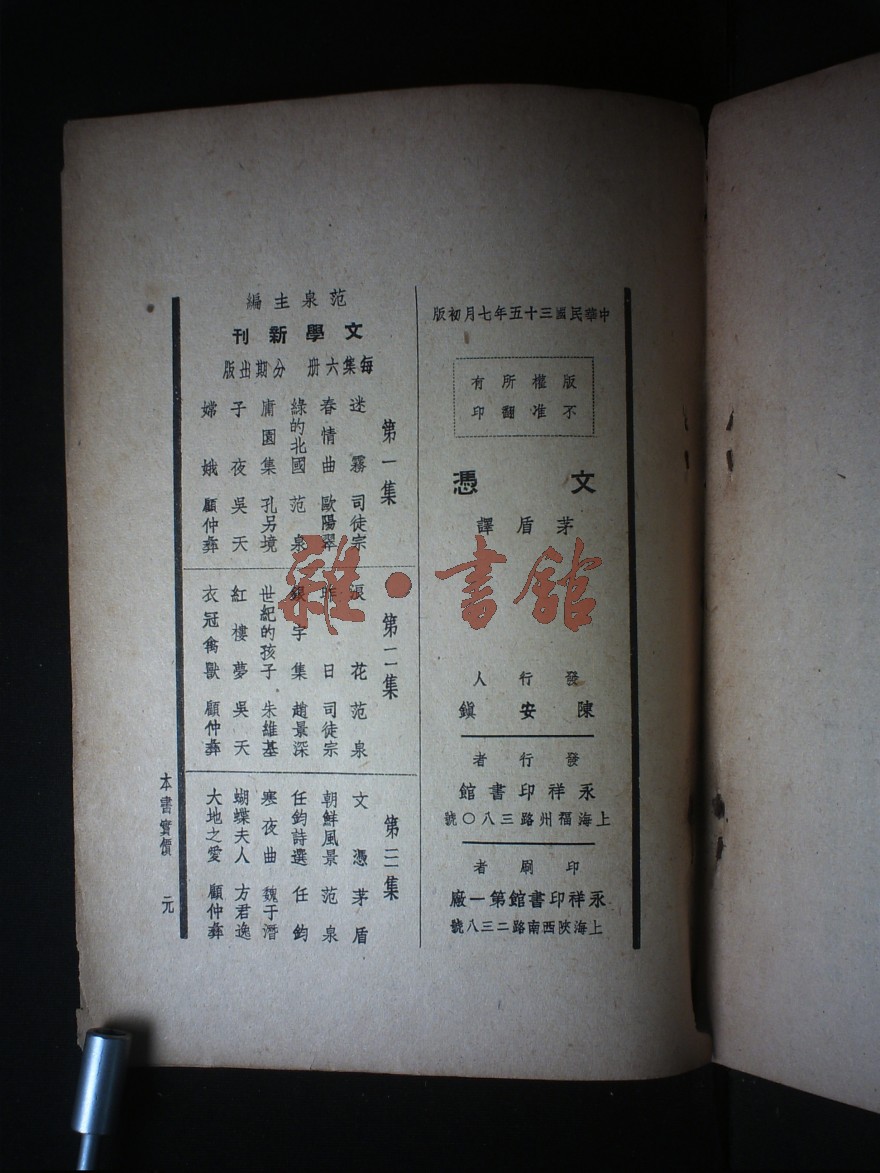 中華民國三十五年七月初版
版權所有
不准翻印
文憑
茅盾譯
發行人
陳安鎮
發行者
永祥印書館
上海福州路三八〇號
印刷者
永祥印書館第一廠
上海陝西南路二三八號
范泉主編
文學新刊
每集六册 分期出版
第一集
迷霧 司徒宗
春情曲 歐陽翠
綠的北國 范泉
庸園集 孔另境
子夜 吳天
嫦娥 顧仲彝
第二集
浪花 范泉
昨日 司徒宗
銀字集 趙景深
世紀的孩子 朱維基
紅樓夢 吳天
衣冠禽獸 顧仲彝
第三集
文憑 茅盾
朝鮮風景 范泉
任鈞詩選 任鈞
寒夜曲 魏于潛
蝴蝶夫人 方君逸
大地之愛 顧仲彝
本書實價 元
雜·書館